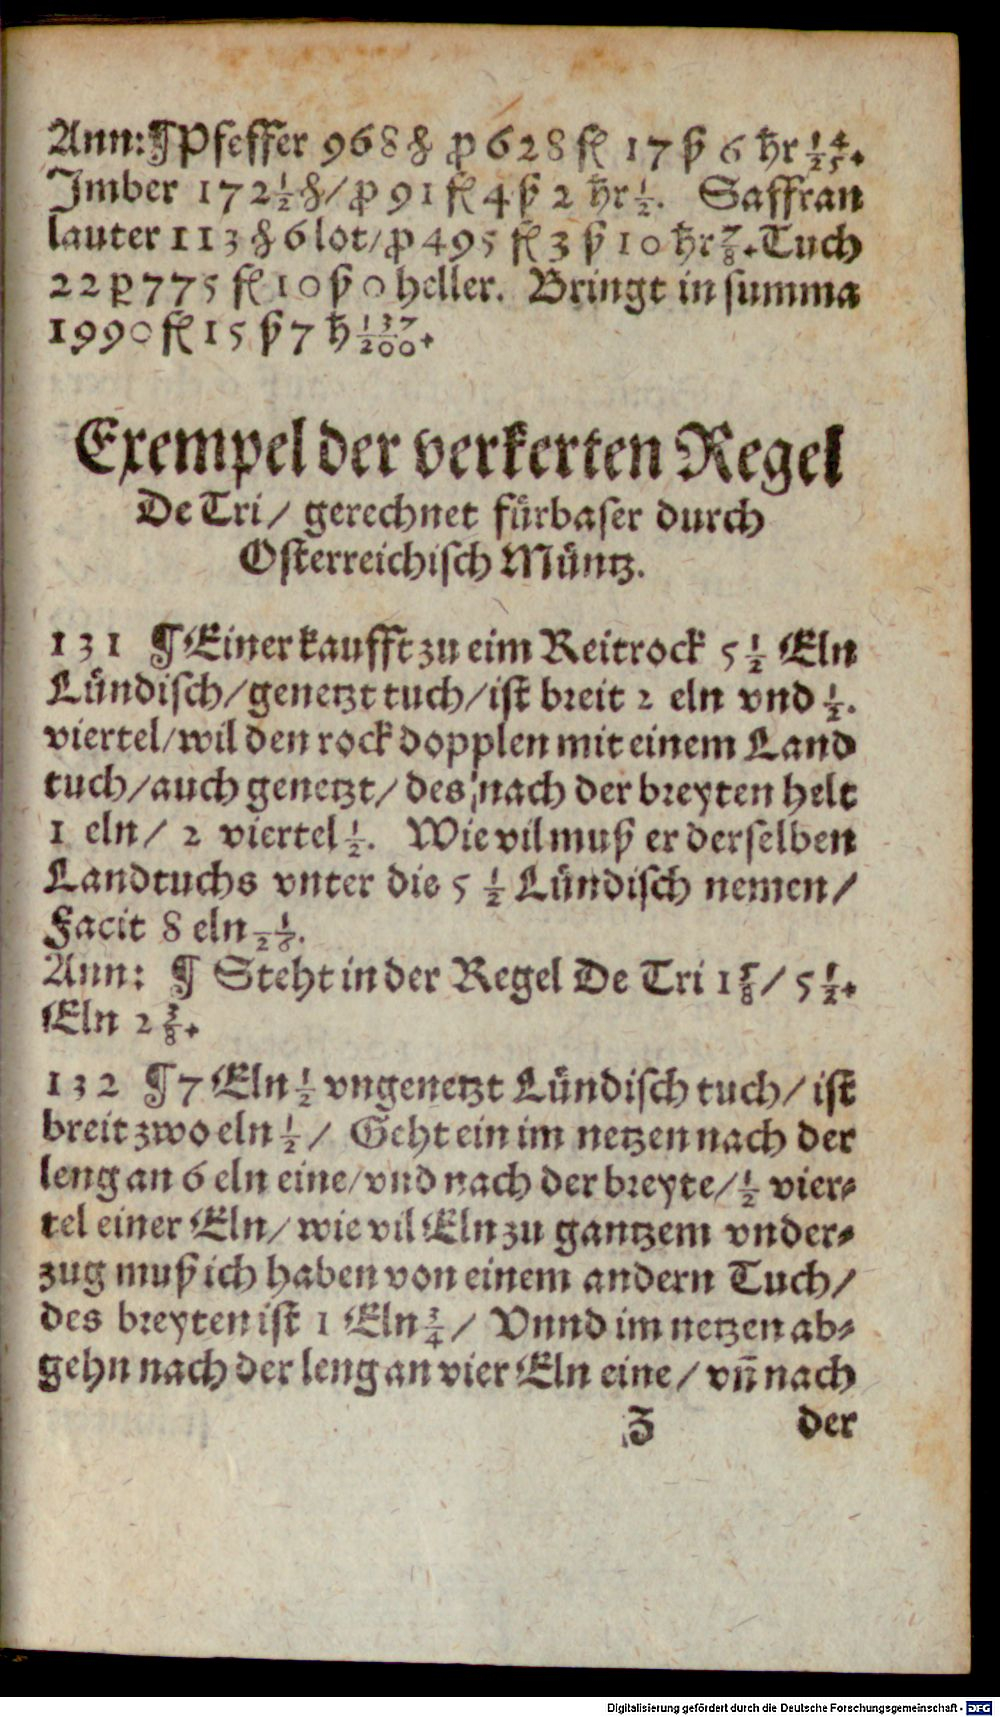 Ann: ¶ Pfeffer 968 ℔ ꝓ 628 fl 17 ß 6 hr 14/25.
Jmber 172 1/2 ℔/ ꝓ 91 fl 4 ß 2 hr 1/2. Saffran
lauter 113 ℔ 6 lot/ ꝓ 495 fl 3 ß 10 hr 7/8. Tuch
22 ꝑ 775 fl 10 ß 0 heller. Bringt in summa
1990 fl 15 ß 7 h 137/200.
Exempel der verkerten Regel
De Tri/ gerechnet fürbaser durch
Osterreichisch Müntz.
131 ¶ Einer kaufft zu eim Reitrock 5 1/2 Eln
Lündisch/ genetzt tuch/ ist breit 2 eln vnd 1/2.
viertel/ wil den rock dopplen mit einem Land
tuch/ auch genetzt/ des nach der breyten helt
1 eln/ 2 viertel 1/2. Wie vil muß er derselben
Landtuchs vnter die 5 1/2 Lündisch nemen/
Facit 8 eln 1/26.
Ann: ¶ Steht in der Regel De Tri 1 5/8/ 5 1/2.
Eln 2 3/8.
132 ¶ 7 Eln 1/2 vngenetzt Lündisch tuch/ ist
breit zwo eln 1/2/ Geht ein im netzen nach der
leng an 6 eln eine/ vnd nach der breyte/ 1/2 vier⸗
tel einer Eln/ wie vil Eln zu gantzem vnder⸗
zug muß ich haben von einem andern Tuch/
des breyten ist 1 Eln 3/4/ Vnnd im netzen ab⸗
gehn nach der leng an vier Eln eine/ vn̄ nach
Z der
Digitalisierung gefördert durch die Deutsche Forschungsgemeinschaft - DFG